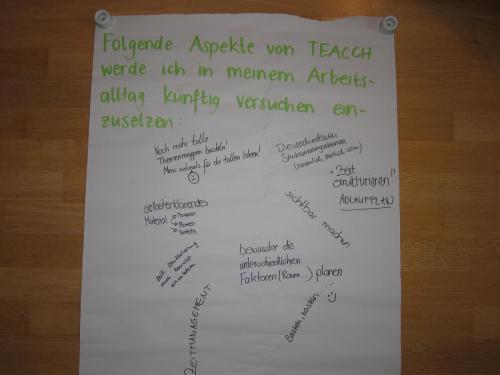 Folgende Aspekte von TEACCH
werde ich in meinem Arbeits-
alltag künftig versuchen ein-
zusetzen:
Noch mehr tolle
Themenmappen basteln!
vielmals für die tollen Ideen!
Die verschiedenen
Strukturierungsebenen
(räumlich, zeitlich usw.)
"Zeit
strukturieren!"
ABLAUFPLAN
sichtbar machen
selbsterklärendes
Material → Mappen
→ Boxen
→ Tabletts
bewusster die
unterschiedlichen
Faktoren (Raum...) planen
ZEITMANAGEMENT
Basteln, basteln...